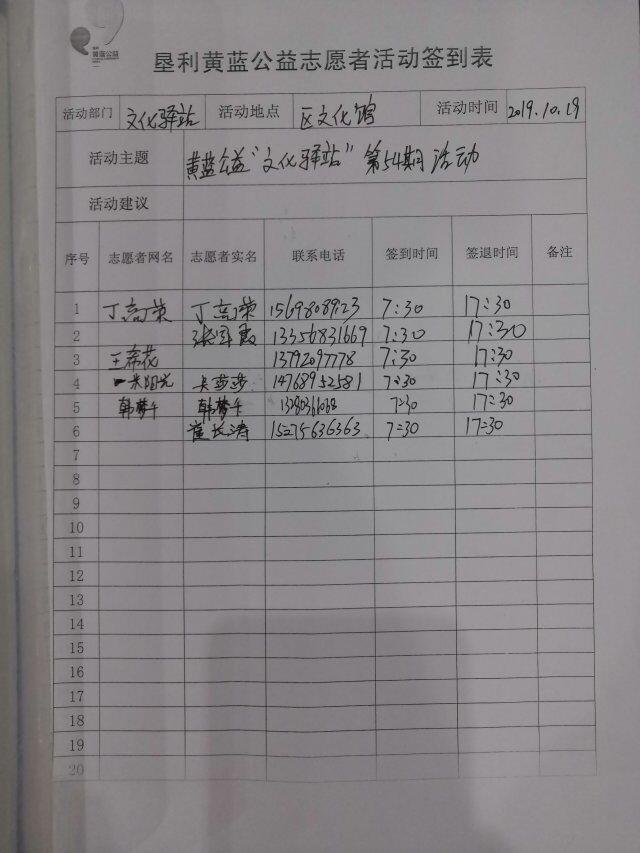 黄蓝公益
垦利黄蓝公益志愿者活动签到表
活动部门 文化驿站 活动地点 区文化馆 活动时间 2019.10.19
活动主题 黄蓝公益"文化驿站"第54期活动
活动建议
序号 志愿者网名 志愿者实名 联系电话 签到时间 签退时间 备注
1 丁高荣 丁高荣 15698089123 7:30 17:30
2 13356831669 7:30 17:30
3 王希花 13792097778 7:30 17:30
4 一米阳光 卡莎莎 14768952581 7:30 17:30
5 韩梦千 韩梦千 7:30 17:30
6 崔长涛 15275636363 7:30 17:30
7
8
9
10
11
12
13
14
15
16
17
18
19
20